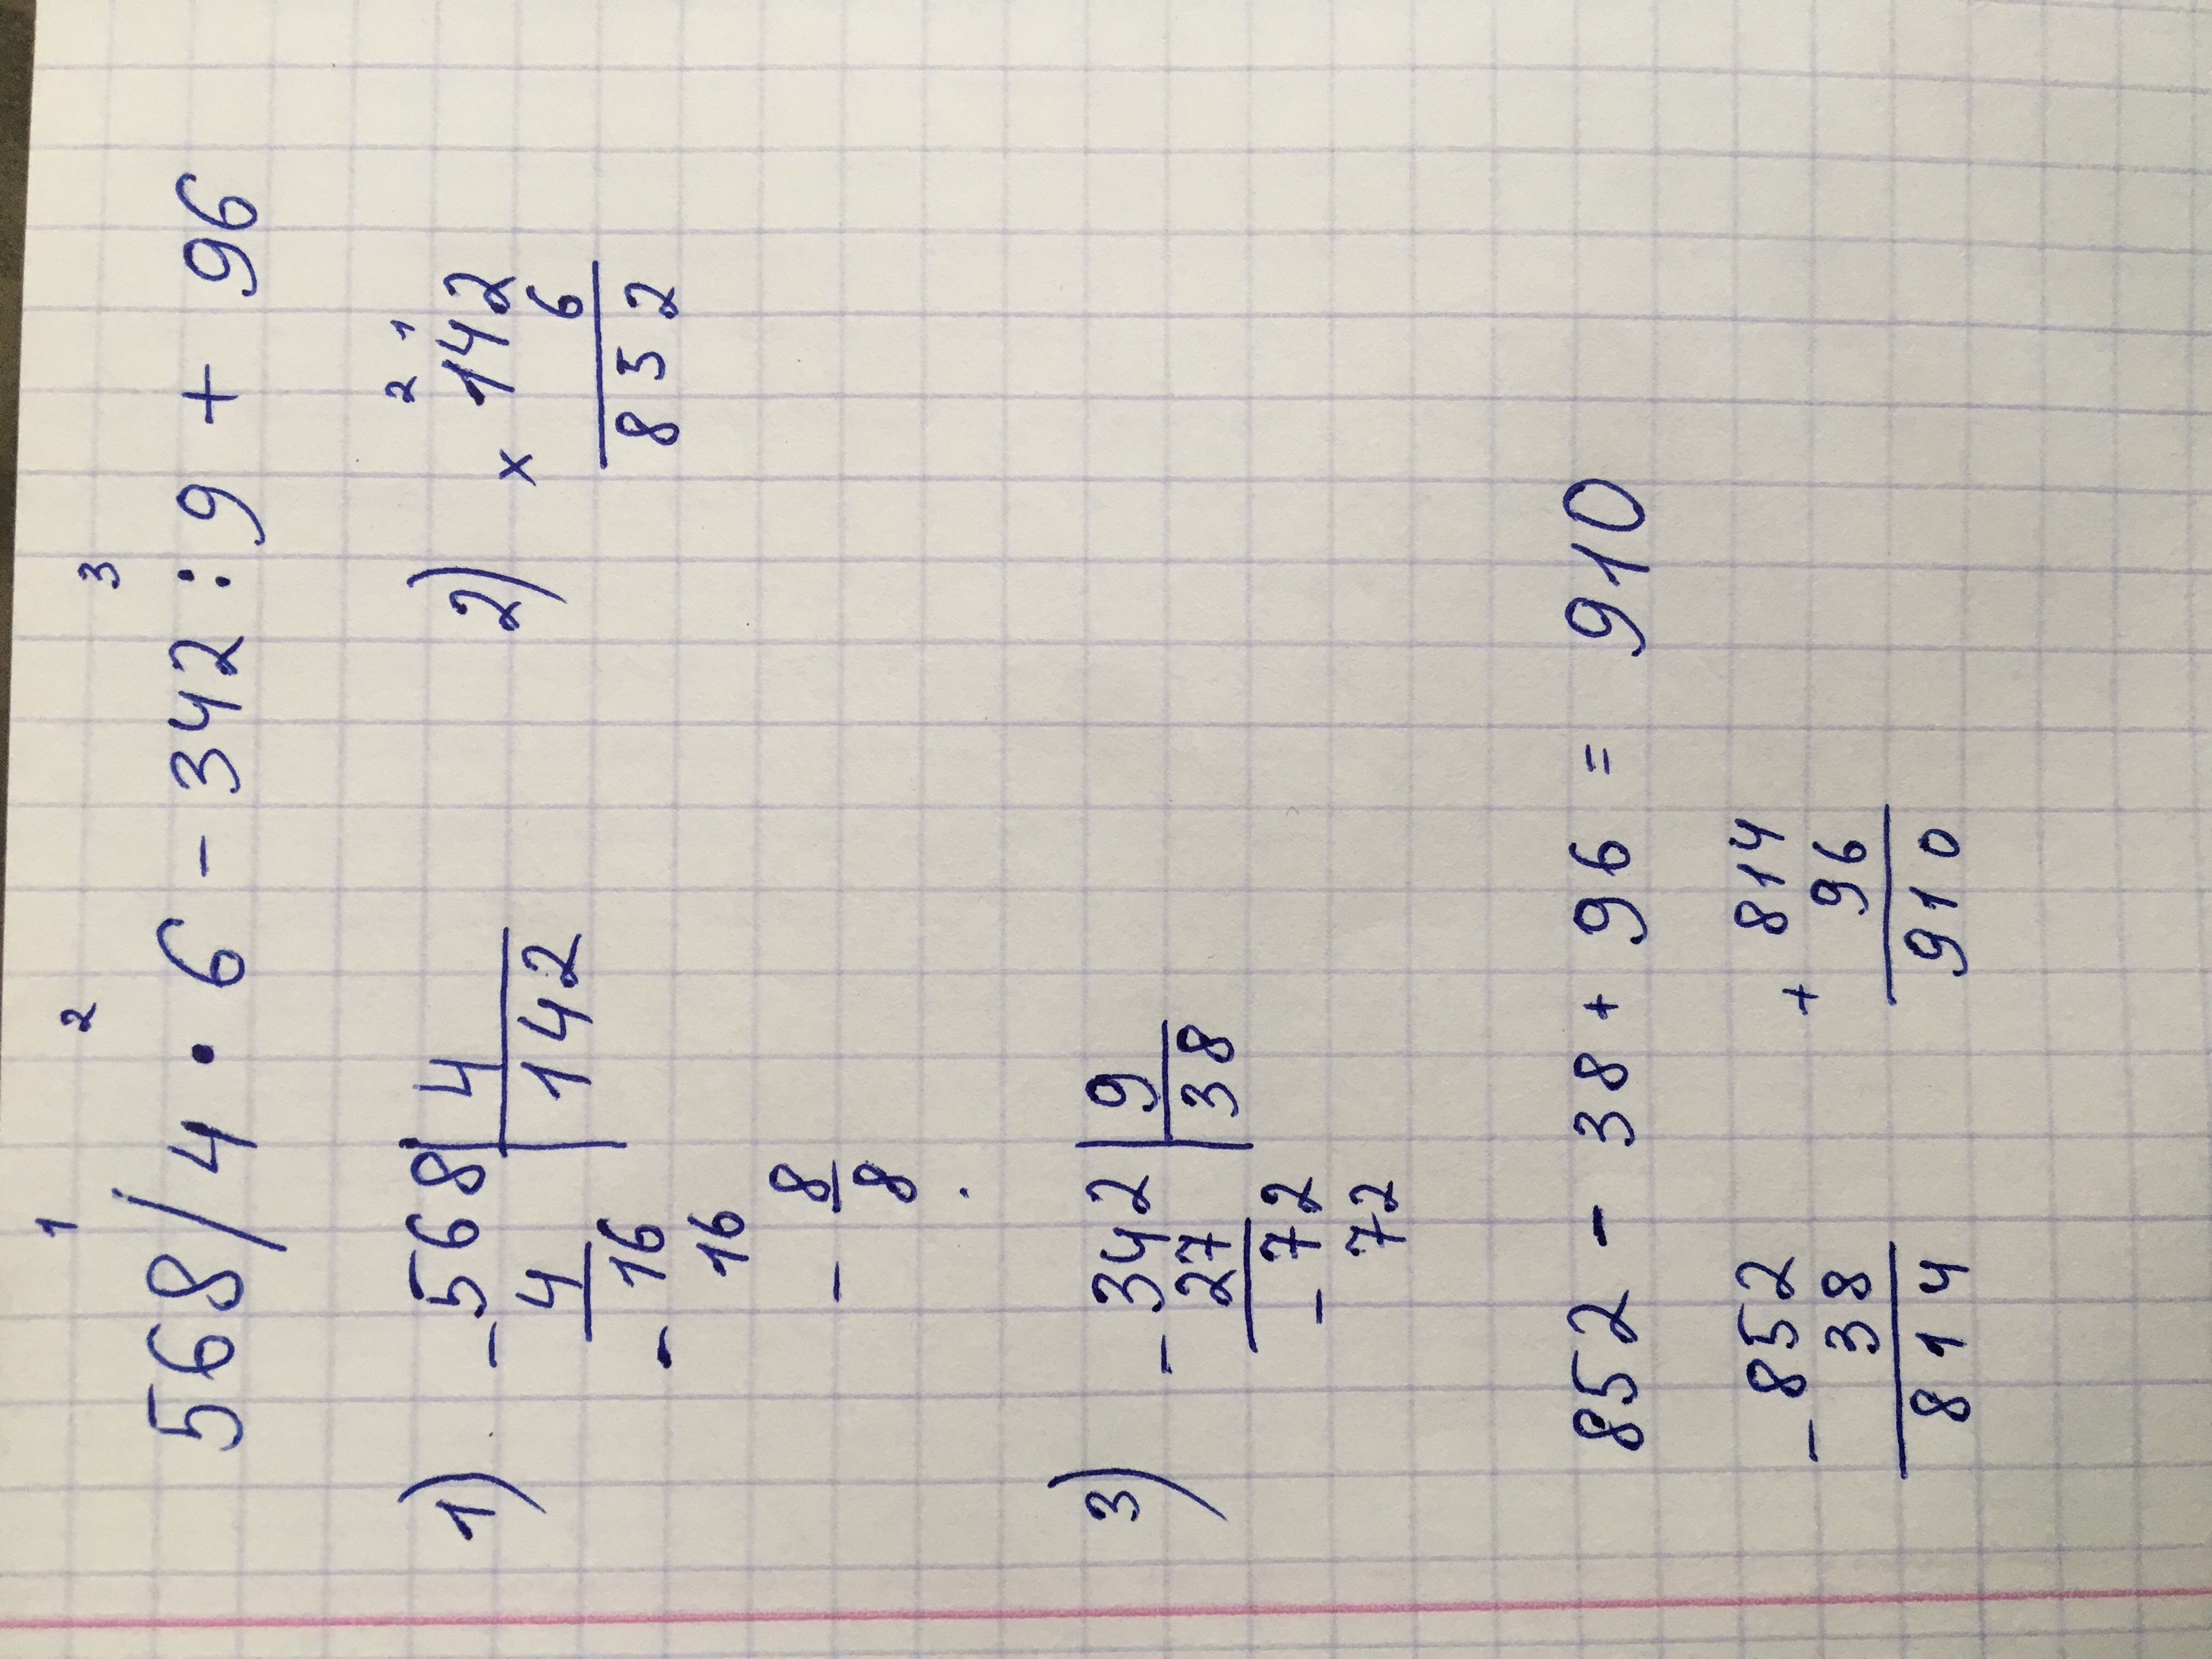 1 2 3
568/4 · 6 - 342 : 9 + 96
1) -568 | 4 2) × 142
4 142 2 1
-16 6
16 852
- 8
8
3) -342 | 9
27 38
- 72
72
852 - 38 + 96 = 910
- 852 + 814
38 96
814 910